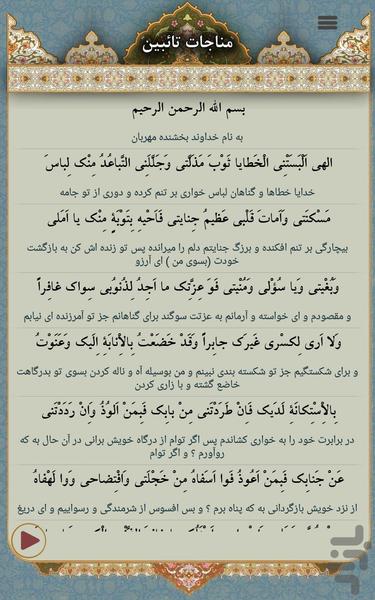 مناجات تائبین
بسم الله الرحمن الرحیم
به نام خداوند بخشنده مهربان
الهی اَلْبَسَتْنِی الْخَطایا ثَوْبَ مَذَلَّتی وَجَلَّلَنِی التَّباعُدُ مِنْکَ لِباسَ
خدایا خطاها و گناهان لباس خواری بر تنم کرده و دوری از تو جامه
مَسْکَنَتی وَاَماتَ قَلْبی عَظیمُ جِنایَتی فَاَحْیِهِ بِتَوْبَةٍ مِنْکَ یا اَمَلی
بیچارگی بر تنم افکنده و بزرگ جنایتم دلم را میرانده پس تو زنده اش کن به بازگشت
خودت (بسوی من ) ای آرزو
وَبُغْیَتی وَیا سُؤْلی وَمُنْیَتی فَوَ عِزَّتِکَ ما اَجِدُ لِذُنوُبی سِواکَ غافِراً
و مقصودم و ای خواسته و آرمانم به عزتت سوگند برای گناهانم جز تو آمرزنده ای نیابم
وَلا اَری لِکَسْری غَیْرَکَ جابِراً وَقَدْ خَضَعْتُ بِالْاِنابَةِ اِلَیْکَ وَعَنَوْتُ
و برای شکستگیم جز تو شکسته بندی نبینم و من بوسیله آه و ناله کردن بسوی تو بدرگاهت
خاضع گشته و با زاری کردن
بِالْاِسْتِکانَةِ لَدَیْکَ فَاِنْ طَرَدْتَنی مِنْ بابِکَ فَبِمَنْ اَلُوذُ وَاِنْ رَدَدْتَنی
در برابرت خود را به خواری کشاندم پس اگر توام از درگاه خویش برانی در آن حال به که
روآورم ؟ و اگر توام
عَنْ جَنابِکَ فَبِمَنْ اَعُوذُ فَوا اَسَفاهُ مِنْ خَجْلَتی وَافْتِضاحی وَوا لَهْفاهُ
از نزد خویش بازگردانی به که پناه برم ؟ و بس افسوس از شرمندگی و رسواییم و ای دریغ
بازار